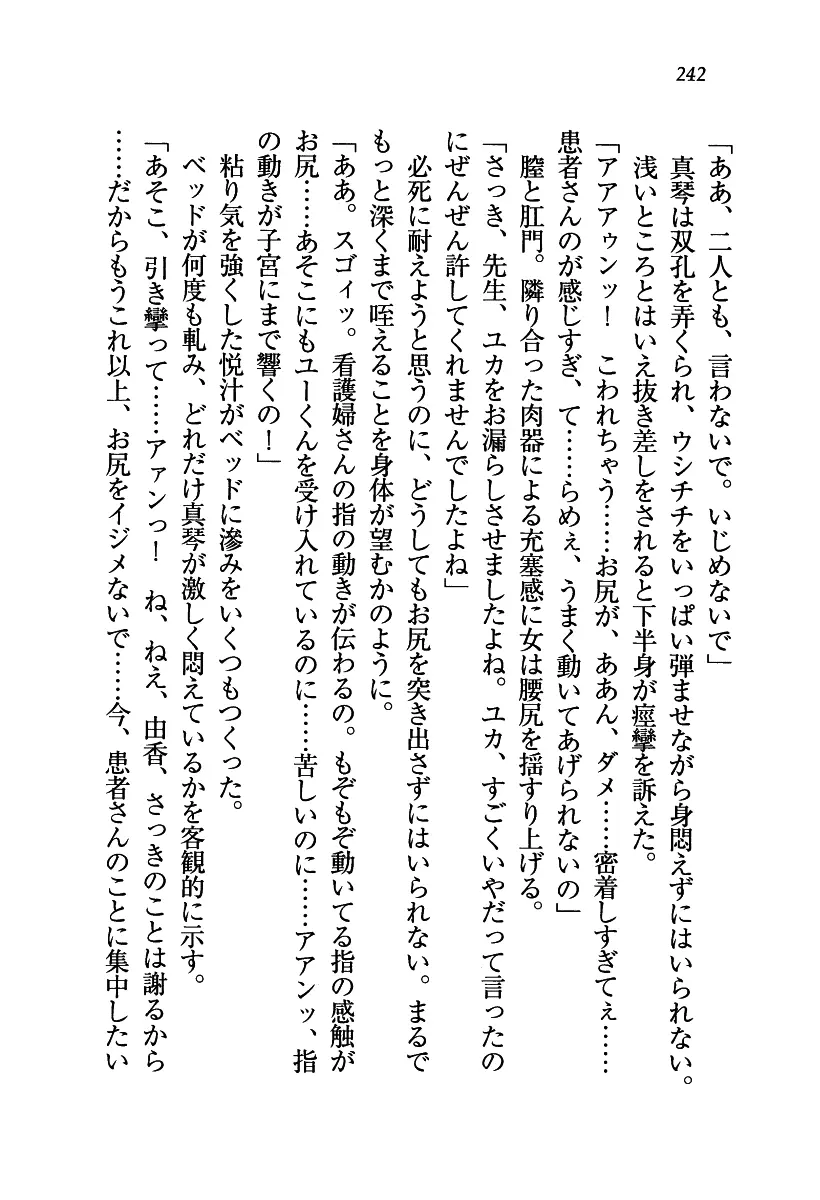 242
「ああ、二人とも、言わないで。いじめないで」
　真琴は双孔を弄くられ、ウシチチをいっぱい弾ませながら身悶えずにはいられない。
　浅いところとはいえ抜き差しをされると下半身が痙攣を訴えた。
「アアアゥンッ！　こわれちゃう……お尻が、ああん、ダメ……密着しすぎてぇ……
患者さんのが感じすぎ、て……らめぇ、うまく動いてあげられないの」
　膣と肛門。隣り合った肉器による充塞感に女は腰尻を揺すり上げる。
「さっき、先生、ユカをお漏らしさせましたよね。ユカ、すごくいやだって言ったの
にぜんぜん許してくれませんでしたよね」
　必死に耐えようと思うのに、どうしてもお尻を突き出さずにはいられない。まるで
もっと深くまで咥えることを身体が望むかのように。
「ああ。スゴィッ。看護婦さんの指の動きが伝わるの。もぞもぞ動いてる指の感触が
お尻……あそこにもユーくんを受け入れているのに……苦しいのに……アアンッ、指
の動きが子宮にまで響くの！」
　粘り気を強くした悦汁がベッドに滲みをいくつもつくった。
　ベッドが何度も軋み、どれだけ真琴が激しく悶えているかを客観的に示す。
「あそこ、引き攣って……アァンっ！　ね、ねえ、由香、さっきのことは謝るから
……だからもうこれ以上、お尻をイジメないで……今、患者さんのことに集中したい